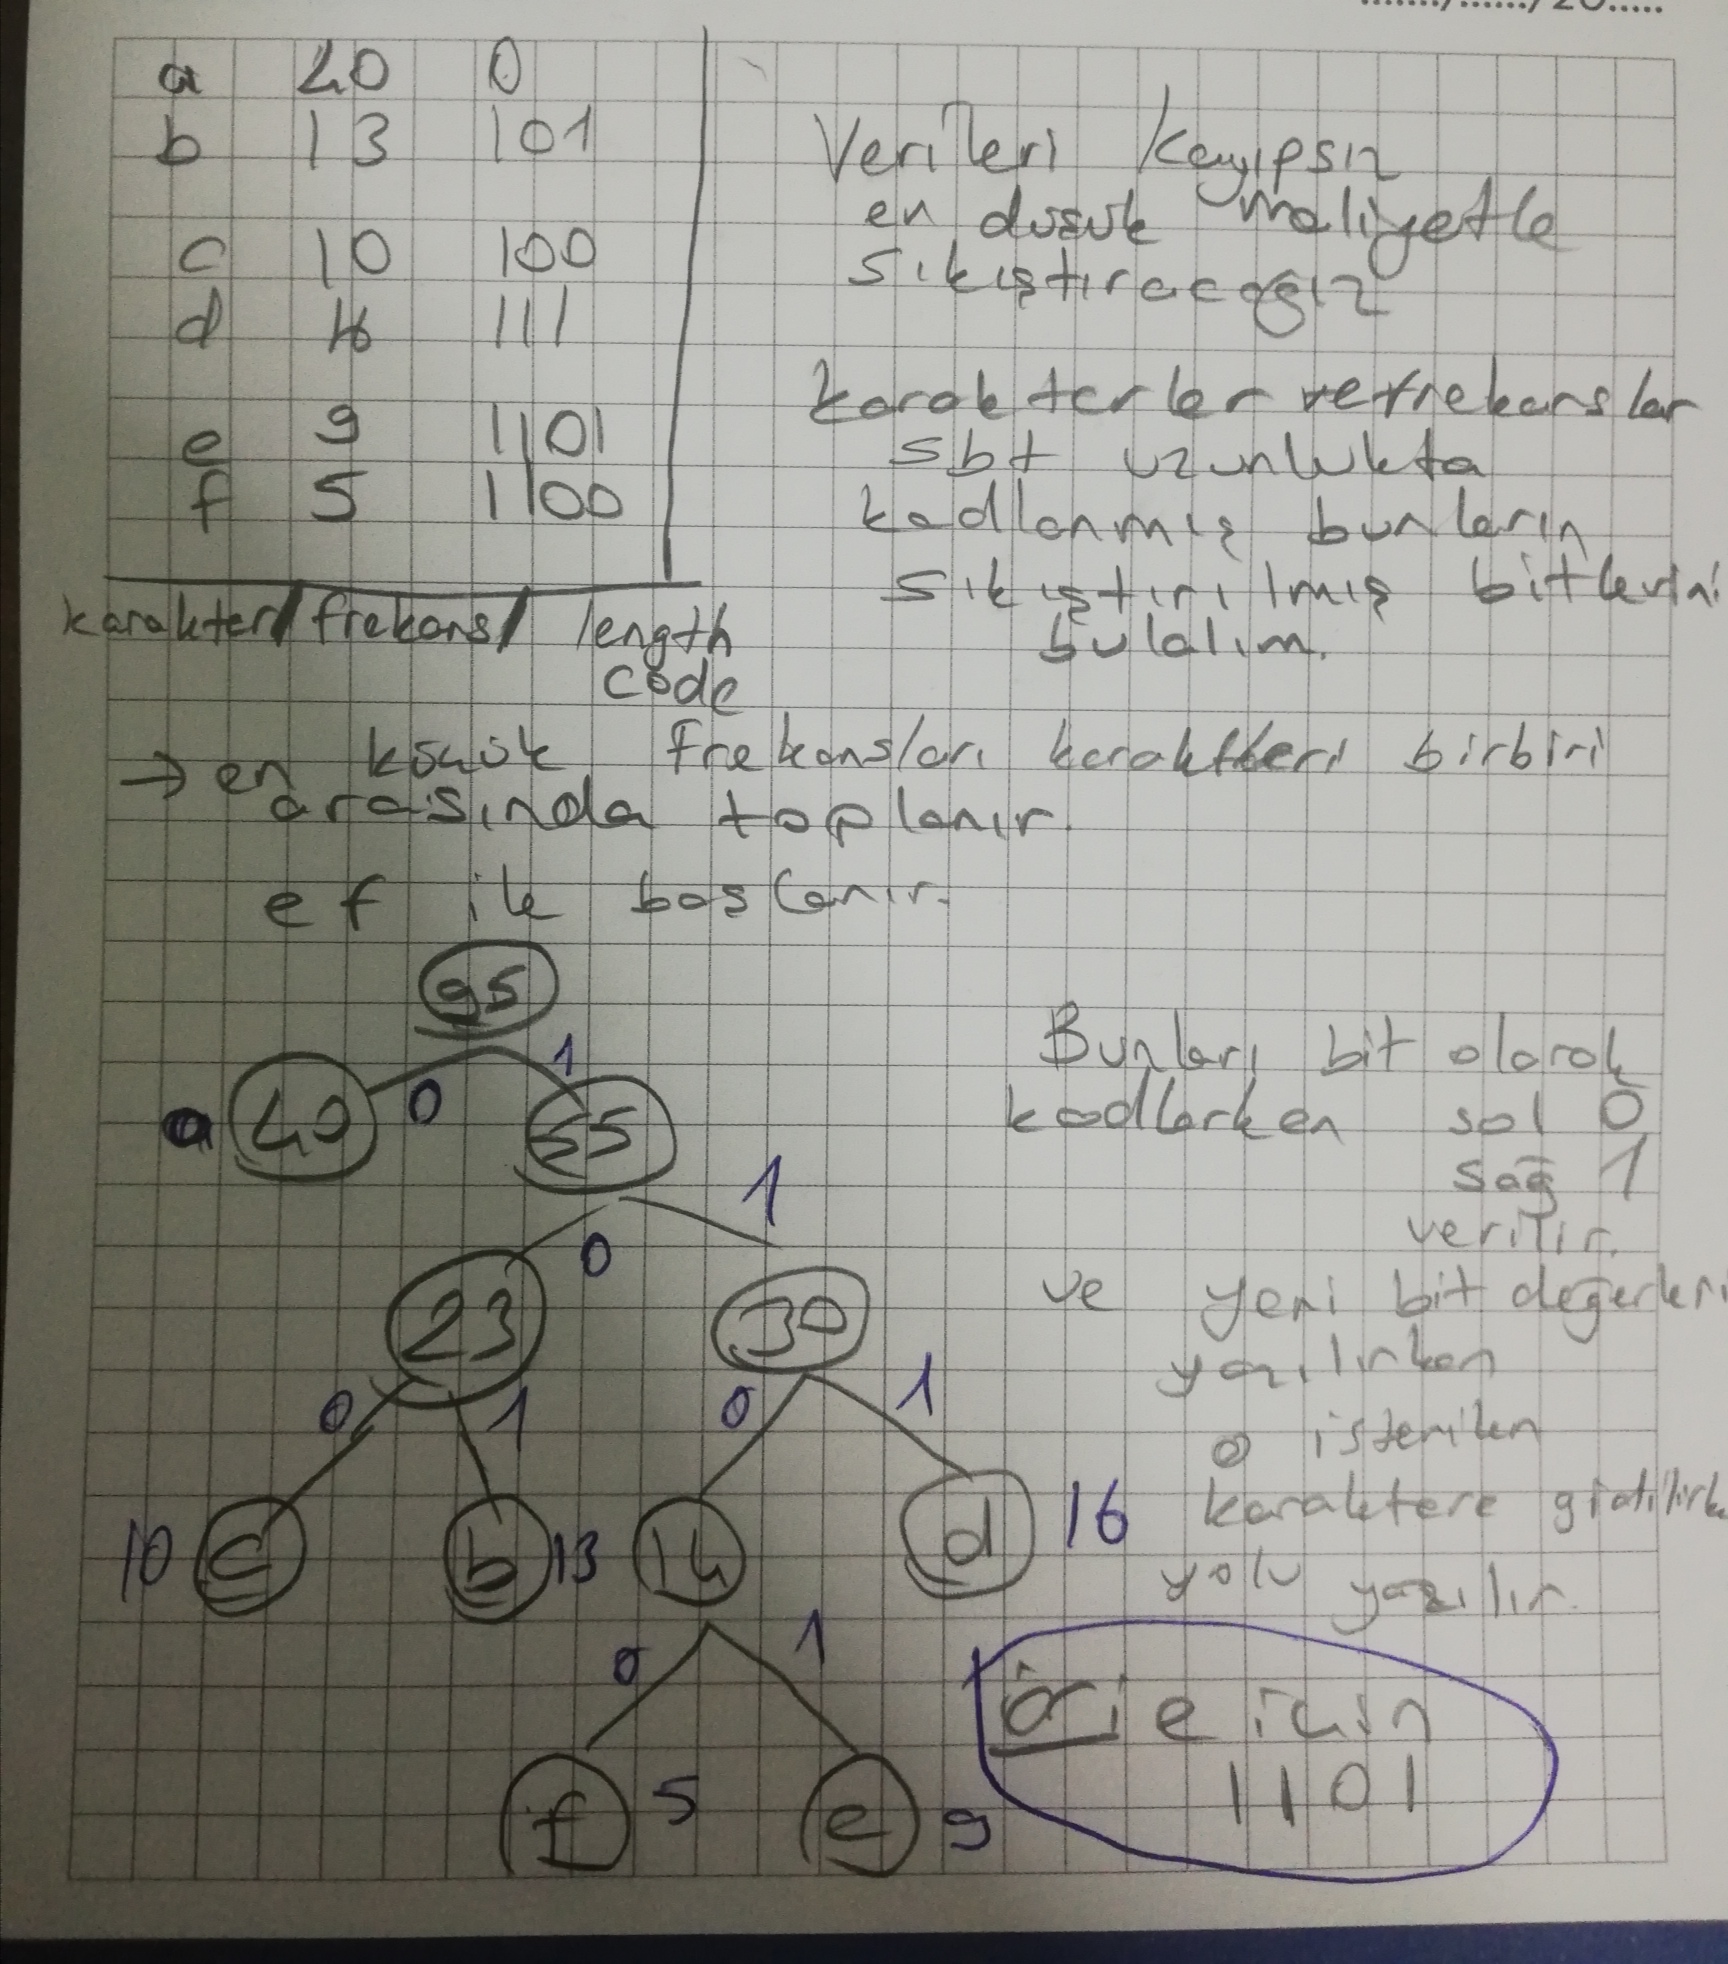 ....../....../20.....
a 40 0
b 13 101
c 10 100
d 16 111
e 9 1101
f 5 1100
karakter / frekans / length
code
Verileri kayıpsız
en düşük maliyetle
sıkıştıracağız
karakterler ve frekanslar
sbt uzunlukta
kodlanmış bunların
sıkıştırılmış bitlerini
bulalım.
→ en küçük frekansları karakterleri birbiri
arasında toplanır.
ef ile başlanır.
95
0 1
a 40 55
0 1
23 30
0 1 0 1
10 c b 13 14 d 16
0 1
f 5 e 9
Bunları bit olarak
kodlarken sol 0
sağ 1
verilir.
ve yeni bit değerleri
yazılırken
o isterilen
karaktere
yolu yazılır.
e için
1101